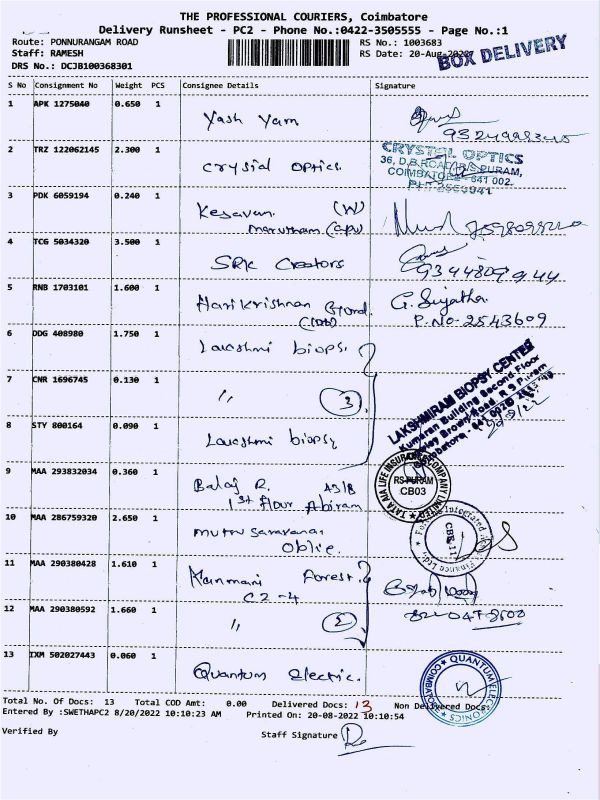 THE PROFESSIONAL COURIERS, Coimbatore
Delivery Runsheet - PC2 - Phone No.:0422-3505555 - Page No.:1
Route: PONNURANGAM ROAD RS No.: 1003683
Staff: RAMESH RS Date: 20-Aug-2022
BOX DELIVERY
DRS No.: DCJB100368301
S No Consignment No Weight PCS Consignee Details Signature
1 APK 1275040 0.650 1 Yash Yarn
2 TRZ 122062145 2.300 1 Crystal Optics
CRYSTAL OPTICS
36, D.B.ROAD, R.S.PURAM,
COIMBATORE - 641 002.
3 PDK 6059194 0.240 1 Kesavan (W)
Marutham (CPV)
4 TCG 5034320 3.500 1 SRK Creators
9344809944
5 RNB 1703101 1.600 1 Hari Krishnan G. Sujatha
P.No-2543609
6 DDG 408980 1.750 1 Lakshmi biopsy
7 CNR 1696745 0.130 1 " 3
LAKSHMIRAM BIOPSY CENTRE
Kumaran Building Second Floor
8 STY 800164 0.090 1 Lakshmi biopsy
9 MAA 293832034 0.360 1 Balaji R. A3/B
1st floor Abiram
TATA AIA LIFE INSURANCE COMPANY LIMITED
RS PURAM
CB03
10 MAA 286759320 2.650 1 Muthu Saravanan
11 MAA 290380428 1.610 1 Manmani Forest.
C2-4
12 MAA 290380592 1.660 1 " 2
13 IXM 502027443 0.060 1 Quantum Electric.
QUANTUM ELECTRONICS
COIMBATORE
Total No. Of Docs: 13 Total COD Amt: 0.00 Delivered Docs: 13 Non Delivered Docs:
Entered By :SWETHAPC2 8/20/2022 10:10:23 AM Printed On: 20-08-2022 10:10:54
Verified By Staff Signature